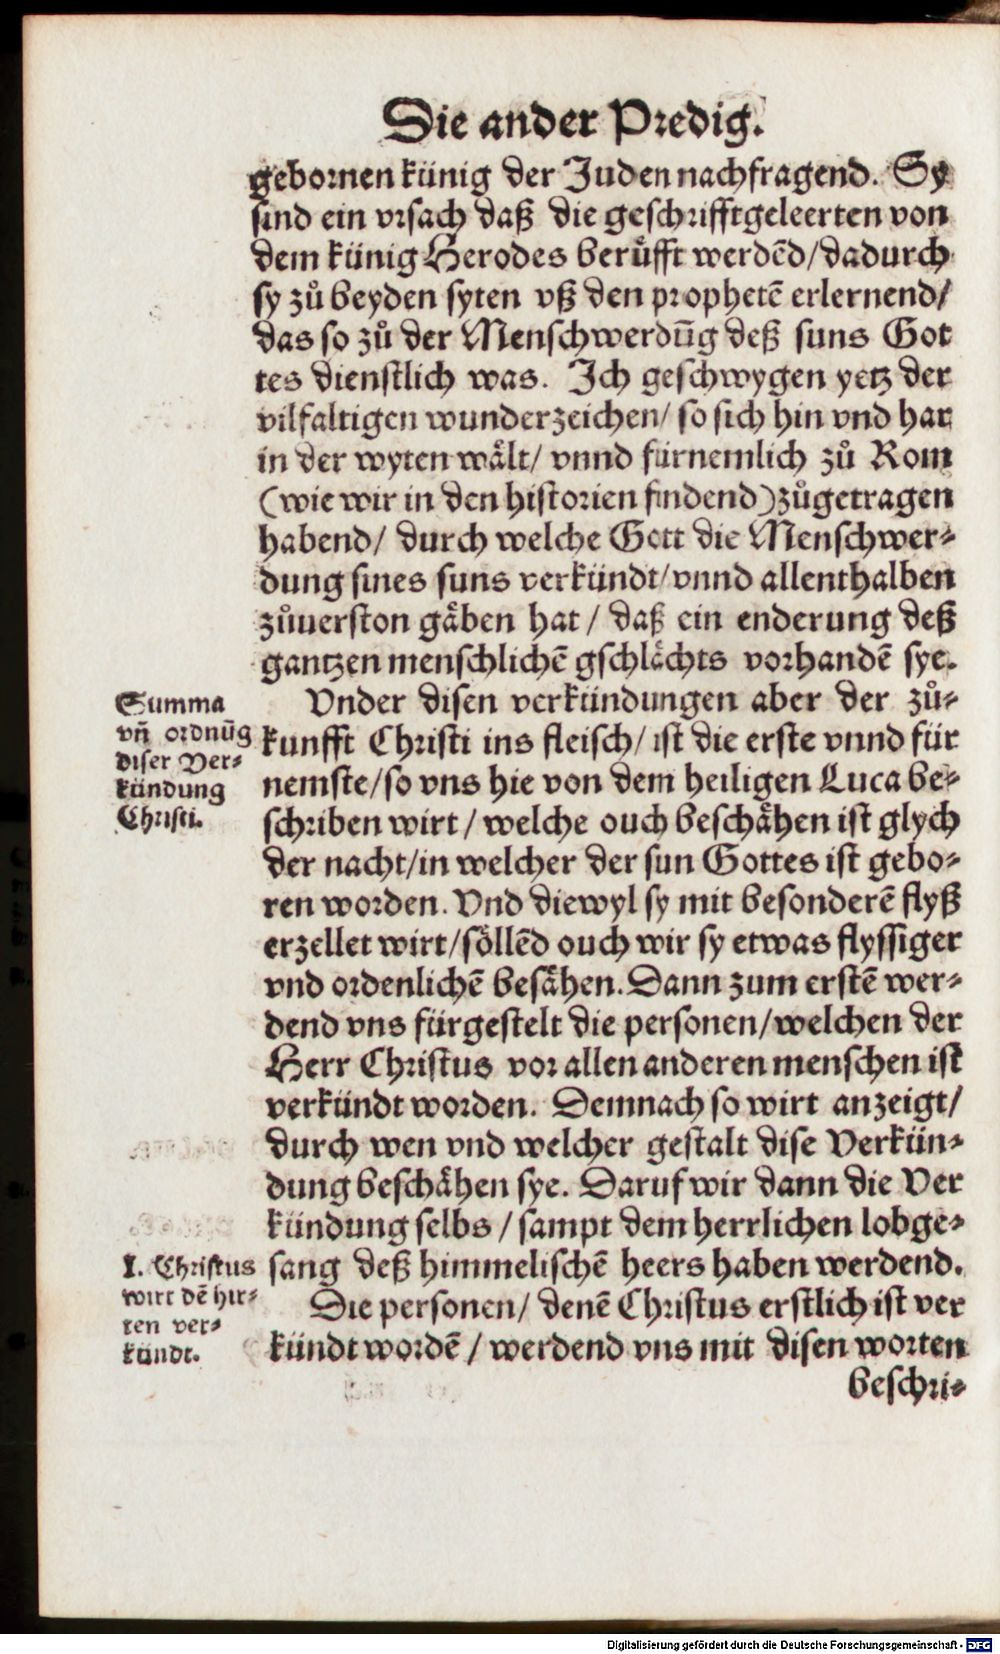 Die ander Predig.
gebornen künig der Juden nachfragend. Sy
sind ein vrsach daß die geschrifftgeleerten von
dem künig Herodes berůfft werdēd/dadurch
sy zů beyden syten vß den prophetē erlernend/
das so zů der Menschwerdūg deß suns Got
tes dienstlich was. Ich geschwygen yetz der
vilfaltigen wunderzeichen/ so sich hin vnd har
in der wyten wålt/ vnnd fürnemlich zů Rom
(wie wir in den historien findend)zůgetragen
habend/ durch welche Gott die Menschwer-
dung sines suns verkündt/vnnd allenthalben
zůuerston gåben hat/ daß ein enderung deß
gantzen menschlichē gschlåchts vorhandē sye.
Summa
vn̄ ordnūg
diser Ver-
kündung
Christi.
Vnder disen verkündungen aber der zů-
kunfft Christi ins fleisch/ ist die erste vnnd für
nemste/so vns hie von dem heiligen Luca be-
schriben wirt/ welche ouch beschåhen ist glych
der nacht/in welcher der sun Gottes ist gebo-
ren worden. Vnd diewyl sy mit besonderē flyß
erzellet wirt/söllēd ouch wir sy etwas flyssiger
vnd ordenlichē besåhen. Dann zum erstē wer-
dend vns fürgestelt die personen/welchen der
Herr Christus vor allen anderen menschen ist
verkündt worden. Demnach so wirt anzeigt/
durch wen vnd welcher gestalt dise Verkün-
dung beschåhen sye. Daruf wir dann die Ver
kündung selbs/ sampt dem herrlichen lobge-
sang deß himmelischē heers haben werdend.
I. Christus
wirt dē hir-
ten ver-
kündt.
Die personen/ denē Christus erstlich ist ver
kündt wordē/ werdend vns mit disen worten
beschri-
Digitalisierung gefördert durch die Deutsche Forschungsgemeinschaft - DFG